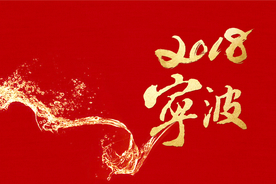 2018
宁波